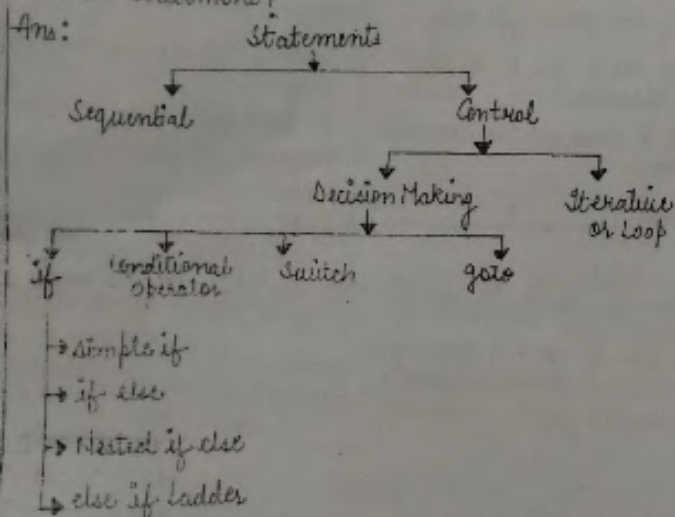 Statement?
Ans:
Statements
Sequential Control
Decision Making Iterative
or Loop
if Conditional Switch goto
operator
simple if
if else
Nested if else
else if Ladder